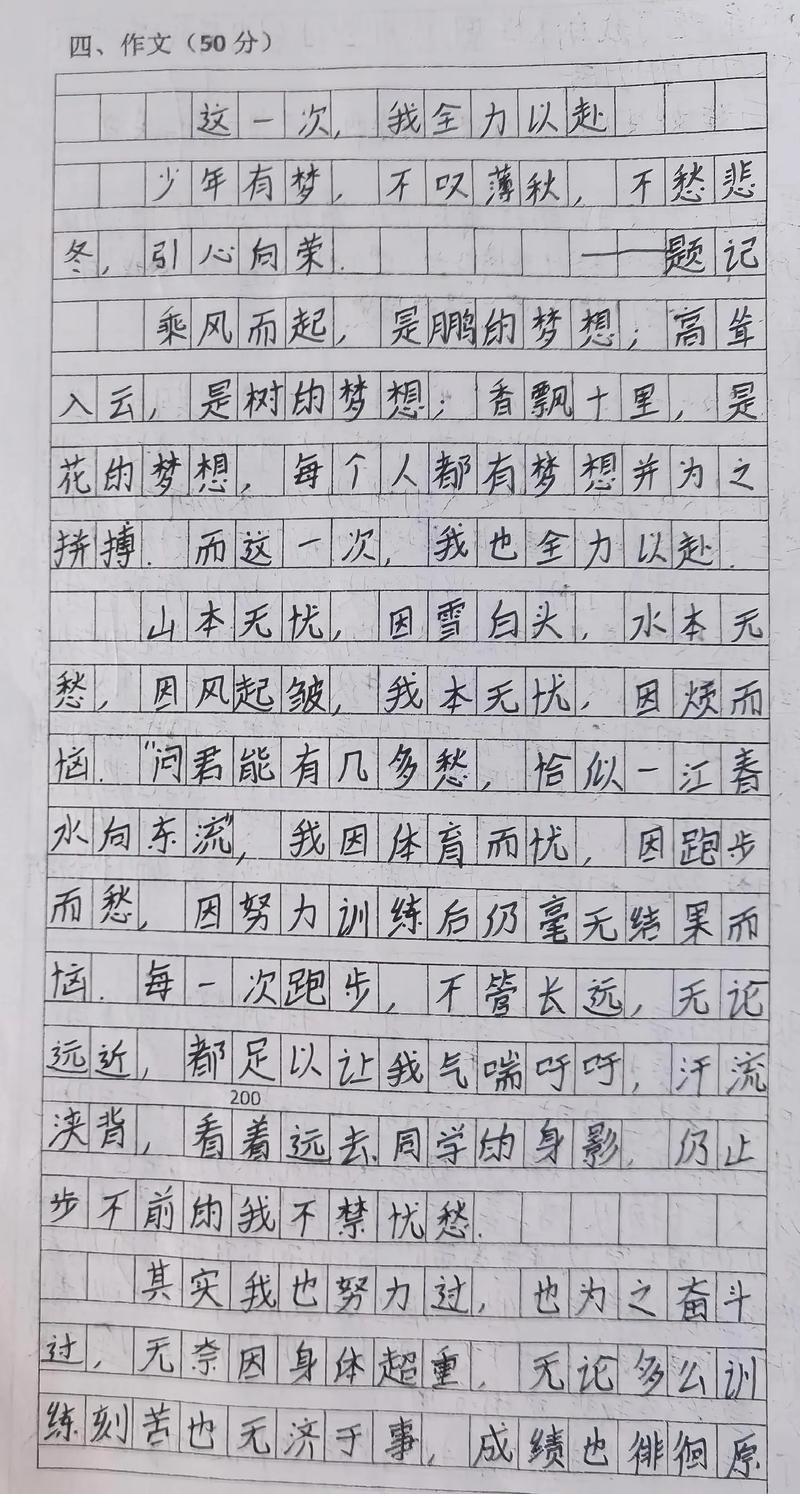 四、作文（50分）
这一次，我全力以赴
少年有梦，不叹薄秋，不愁悲
冬，引心向荣.——题记
乘风而起，是鹏的梦想；高耸
入云，是树的梦想；香飘十里，是
花的梦想，每个人都有梦想并为之
拼搏.而这一次，我也全力以赴.
山本无忧，因雪白头，水本无
愁，因风起皱，我本无忧，因烦而
恼.“问君能有几多愁，恰似一江春
水向东流”，我因体育而忧，因跑步
而愁，因努力训练后仍毫无结果而
恼.每一次跑步，不管长远，无论
远近，都足以让我气喘吁吁，汗流
200
浃背，看着远去同学的身影，仍止
步不前的我不禁忧愁.
其实我也努力过，也为之奋斗
过，无奈因身体超重，无论多么训
练刻苦也无济于事，成绩也徘徊原